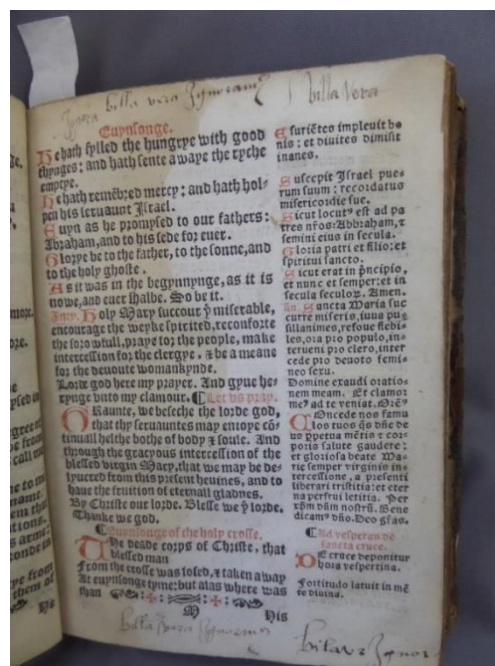 billa vera Ignoram
billa Vera
Euynsonge.
He hath fylled the hungrye with good
thynges: and hath sente awaye the ryche
emptye.
He hath remēbred mercy: and hath hol-
pen his seruaunt Israel.
Euyn as he promysed to our fathers:
Abraham, and to his sede for euer.
Glorye be to the father, to the sonne, and
to the holy ghoste.
As it was in the begynnynge, as it is
nowe, and euer shalbe. So be it.
Holy Mary succour yͤ miserable,
encourage the weyke spirited, reconforte
the sorowfull, praye for the people, make
intercession for the clergye, ⁊ be a meane
for the deuoute womankynde.
Lorde god here my prayer. And gyue he-
rynge vnto my clamour. ¶ Let vs pray.
GRaunte, we beseche the lorde god,
that thy seruauntes may enioye cō-
tinuall helthe bothe of body ⁊ soule. And
through the gracyous intercession of the
blessed virgin Mary, that we may be de-
lyuered from this present heuines, and to
haue the fruition of eternall gladnes.
By Christe our lorde. Blesse we yͤ lorde.
Thanke we god.
¶ Euynsonge of the holy crosse.
THe deade corps of Christe, that
blessed man
From the crosse was losed, ⁊ taken away
At euynsonge tyme: but alas where was
than
M
His
Esuriētes impleuit bo
nis: et diuites dimisit
inanes.
Suscepit Israel pue-
rum suum: recordatus
misericordie sue.
Sicut locutꝰ est ad pa
tres nr̄os: Abraham, ⁊
semini eius in secula.
Gloria patri et filio: et
spiritui sancto.
Sicut erat in p̄ncipio,
et nunc et semper: et in
secula seculoꝝ. Amen.
An. Sancta Maria suc
curre miseris, iuua pu-
sillanimes, refoue flebi-
les, ora pro populo, in-
terueni pro clero, inter
cede pro deuoto femi-
neo sexu.
Domine exaudi oratio-
nem meam. Et clamor
meꝰ ad te veniat. Orēꝰ
COncede nos famu
los tuos q̄s dn̄e de
us ꝑpetua mētis ⁊ cor-
poris salute gaudere:
et gloriosa beate Ma-
rie semper virginis in-
tercessione, a presenti
liberari tristitia: et eter
na perfrui letitia. Per
xp̄m dn̄m nostrū. Bene
dicamꝰ dn̄o. Deo gr̄as.
¶ Ad vesperas de
sancta cruce.
DE cruce deponitur
hora vespertina.
Fortitudo latuit in mē
te diuina.
billa vera Ignoramus
billa ve Ignor